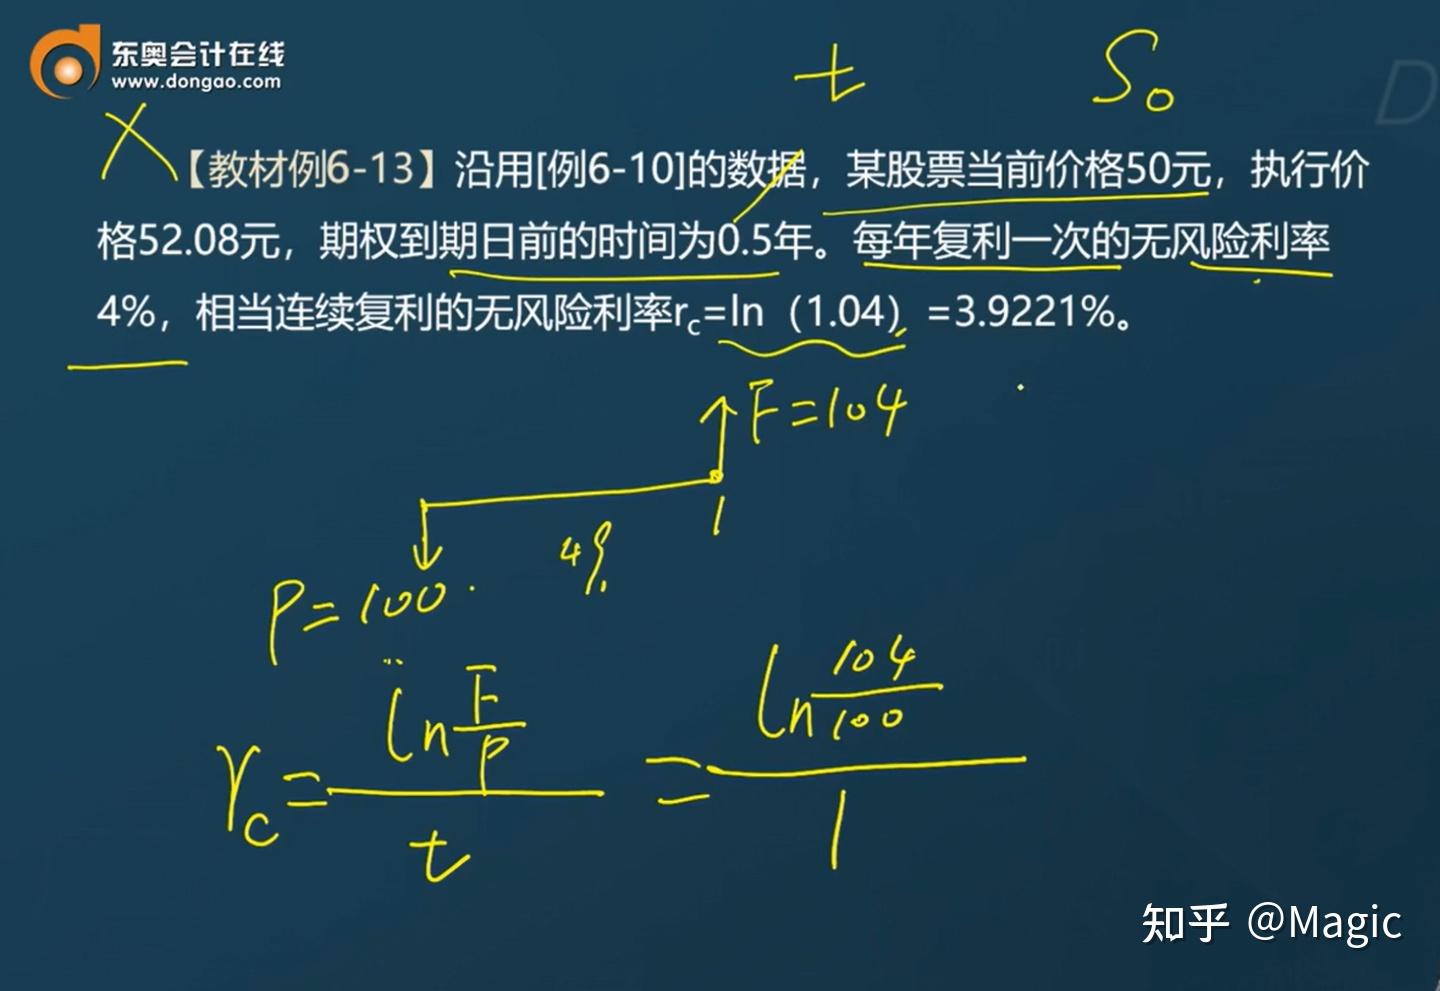 东奥会计在线
www.dongao.com
t
S₀
D
X
【教材例6-13】沿用[例6-10]的数据，某股票当前价格50元，执行价
格52.08元，期权到期日前的时间为0.5年。每年复利一次的无风险利率
4%，相当连续复利的无风险利率rc=ln（1.04）=3.9221%。
F=104
1
4%
P=100
rc = ln F/P / t = ln 104/100 / 1
知乎 @Magic